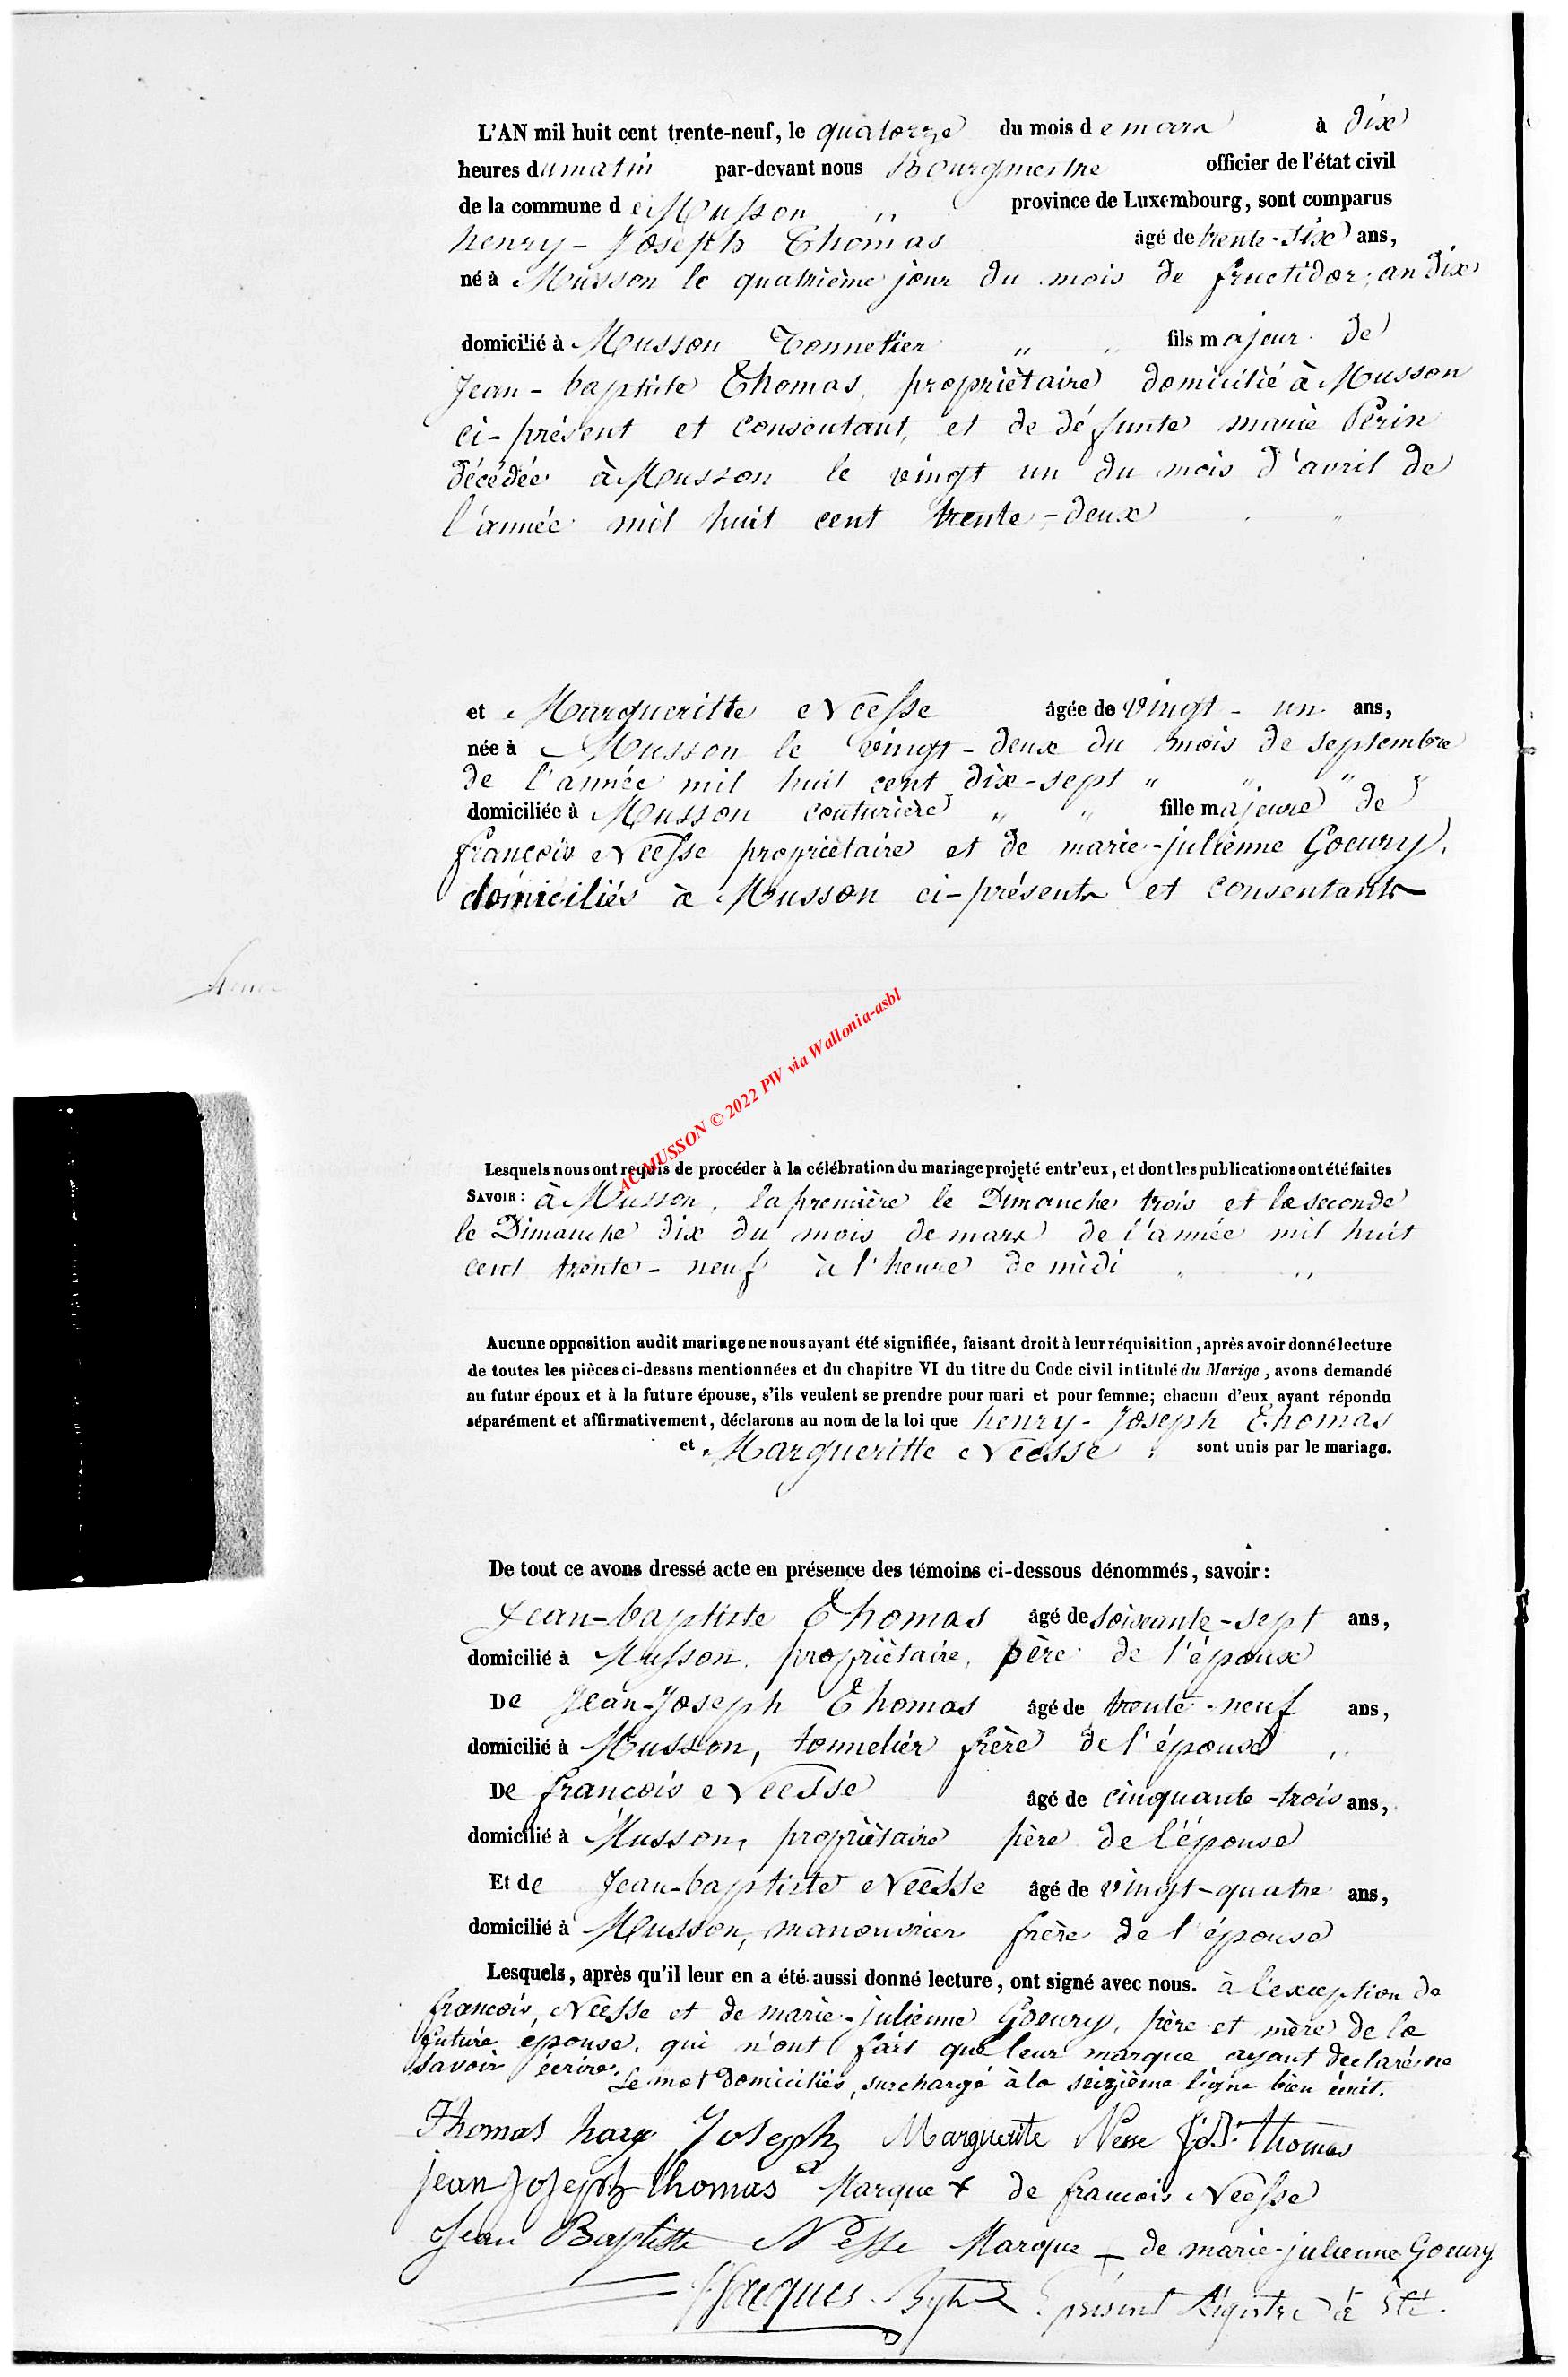 L'AN mil huit cent trente-neuf, le quatorze du mois de mars à dix
heures du matin par-devant nous Bourgmestre officier de l'état civil
de la commune de Musson " province de Luxembourg, sont comparus
henry-Joseph Thomas âgé de trente-six ans,
né à Musson le quatrième jour du mois de fructidor, an dix
domicilié à Musson Tonnelier " " fils majeur de
Jean-baptiste Thomas, propriètaire domicilié à Musson
ci-présent et consentant, et de défunte marie Périn
décédée à Musson le vingt un du mois d'avril de
l'année mil huit cent trente-deux "
et Margueritte Nèesse âgée de vingt-un ans,
née à Musson le vingt-deux du mois de septembre
de l'année mil huit cent dix-sept " " "
domiciliée à Musson couturière " " fille majeure de
françois Nèesse propriètaire et de marie-julienne Goeury,
domiciliés à Musson ci-présents et consentants
AC MUSSON © 2022 PW via Wallonia-asbl
Lesquels nous ont requis de procéder à la célébration du mariage projeté entr'eux, et dont les publications ont été faites
SAVOIR: à Musson, la première le Dimanche trois et la seconde
le Dimanche dix du mois de mars de l'année mil huit
cent trente-neuf à l'heure de midi " "
Aucune opposition audit mariage ne nous ayant été signifiée, faisant droit à leur réquisition, après avoir donné lecture
de toutes les pièces ci-dessus mentionnées et du chapitre VI du titre du Code civil intitulé du Marige, avons demandé
au futur époux et à la future épouse, s'ils veulent se prendre pour mari et pour femme; chacun d'eux ayant répondu
séparément et affirmativement, déclarons au nom de la loi que henry-Joseph Thomas
et Margueritte Nèesse sont unis par le mariage.
De tout ce avons dressé acte en présence des témoins ci-dessous dénommés, savoir:
Jean-baptiste Thomas âgé de soixante-sept ans,
domicilié à Musson, propriètaire, père de l'époux
De Jean-Joseph Thomas âgé de trente-neuf ans,
domicilié à Musson, tonnelier frère de l'époux "
De françois Nèesse âgé de cinquante-trois ans,
domicilié à Musson, propriètaire père de l'épouse
Et de Jean-baptiste Nèesse âgé de vingt-quatre ans,
domicilié à Musson, manouvrier frère de l'épouse
Lesquels, après qu'il leur en a été aussi donné lecture, ont signé avec nous. à l'exception de
françois Nèesse et de marie-julienne Goeury, père et mère de la
future épouse, qui n'ont fait que leur marque ayant declaré ne
savoir écrire. Le mot domiciliés, surchargé à la seizième ligne bien écrit.
Thomas hary Joseph Marguerite Nesse J.B. Thomas
jean joseph thomas Marque + de francois Nèesse
Jean Baptiste Nesse Marque + de marie-julienne Goeury
présent Régistre à été